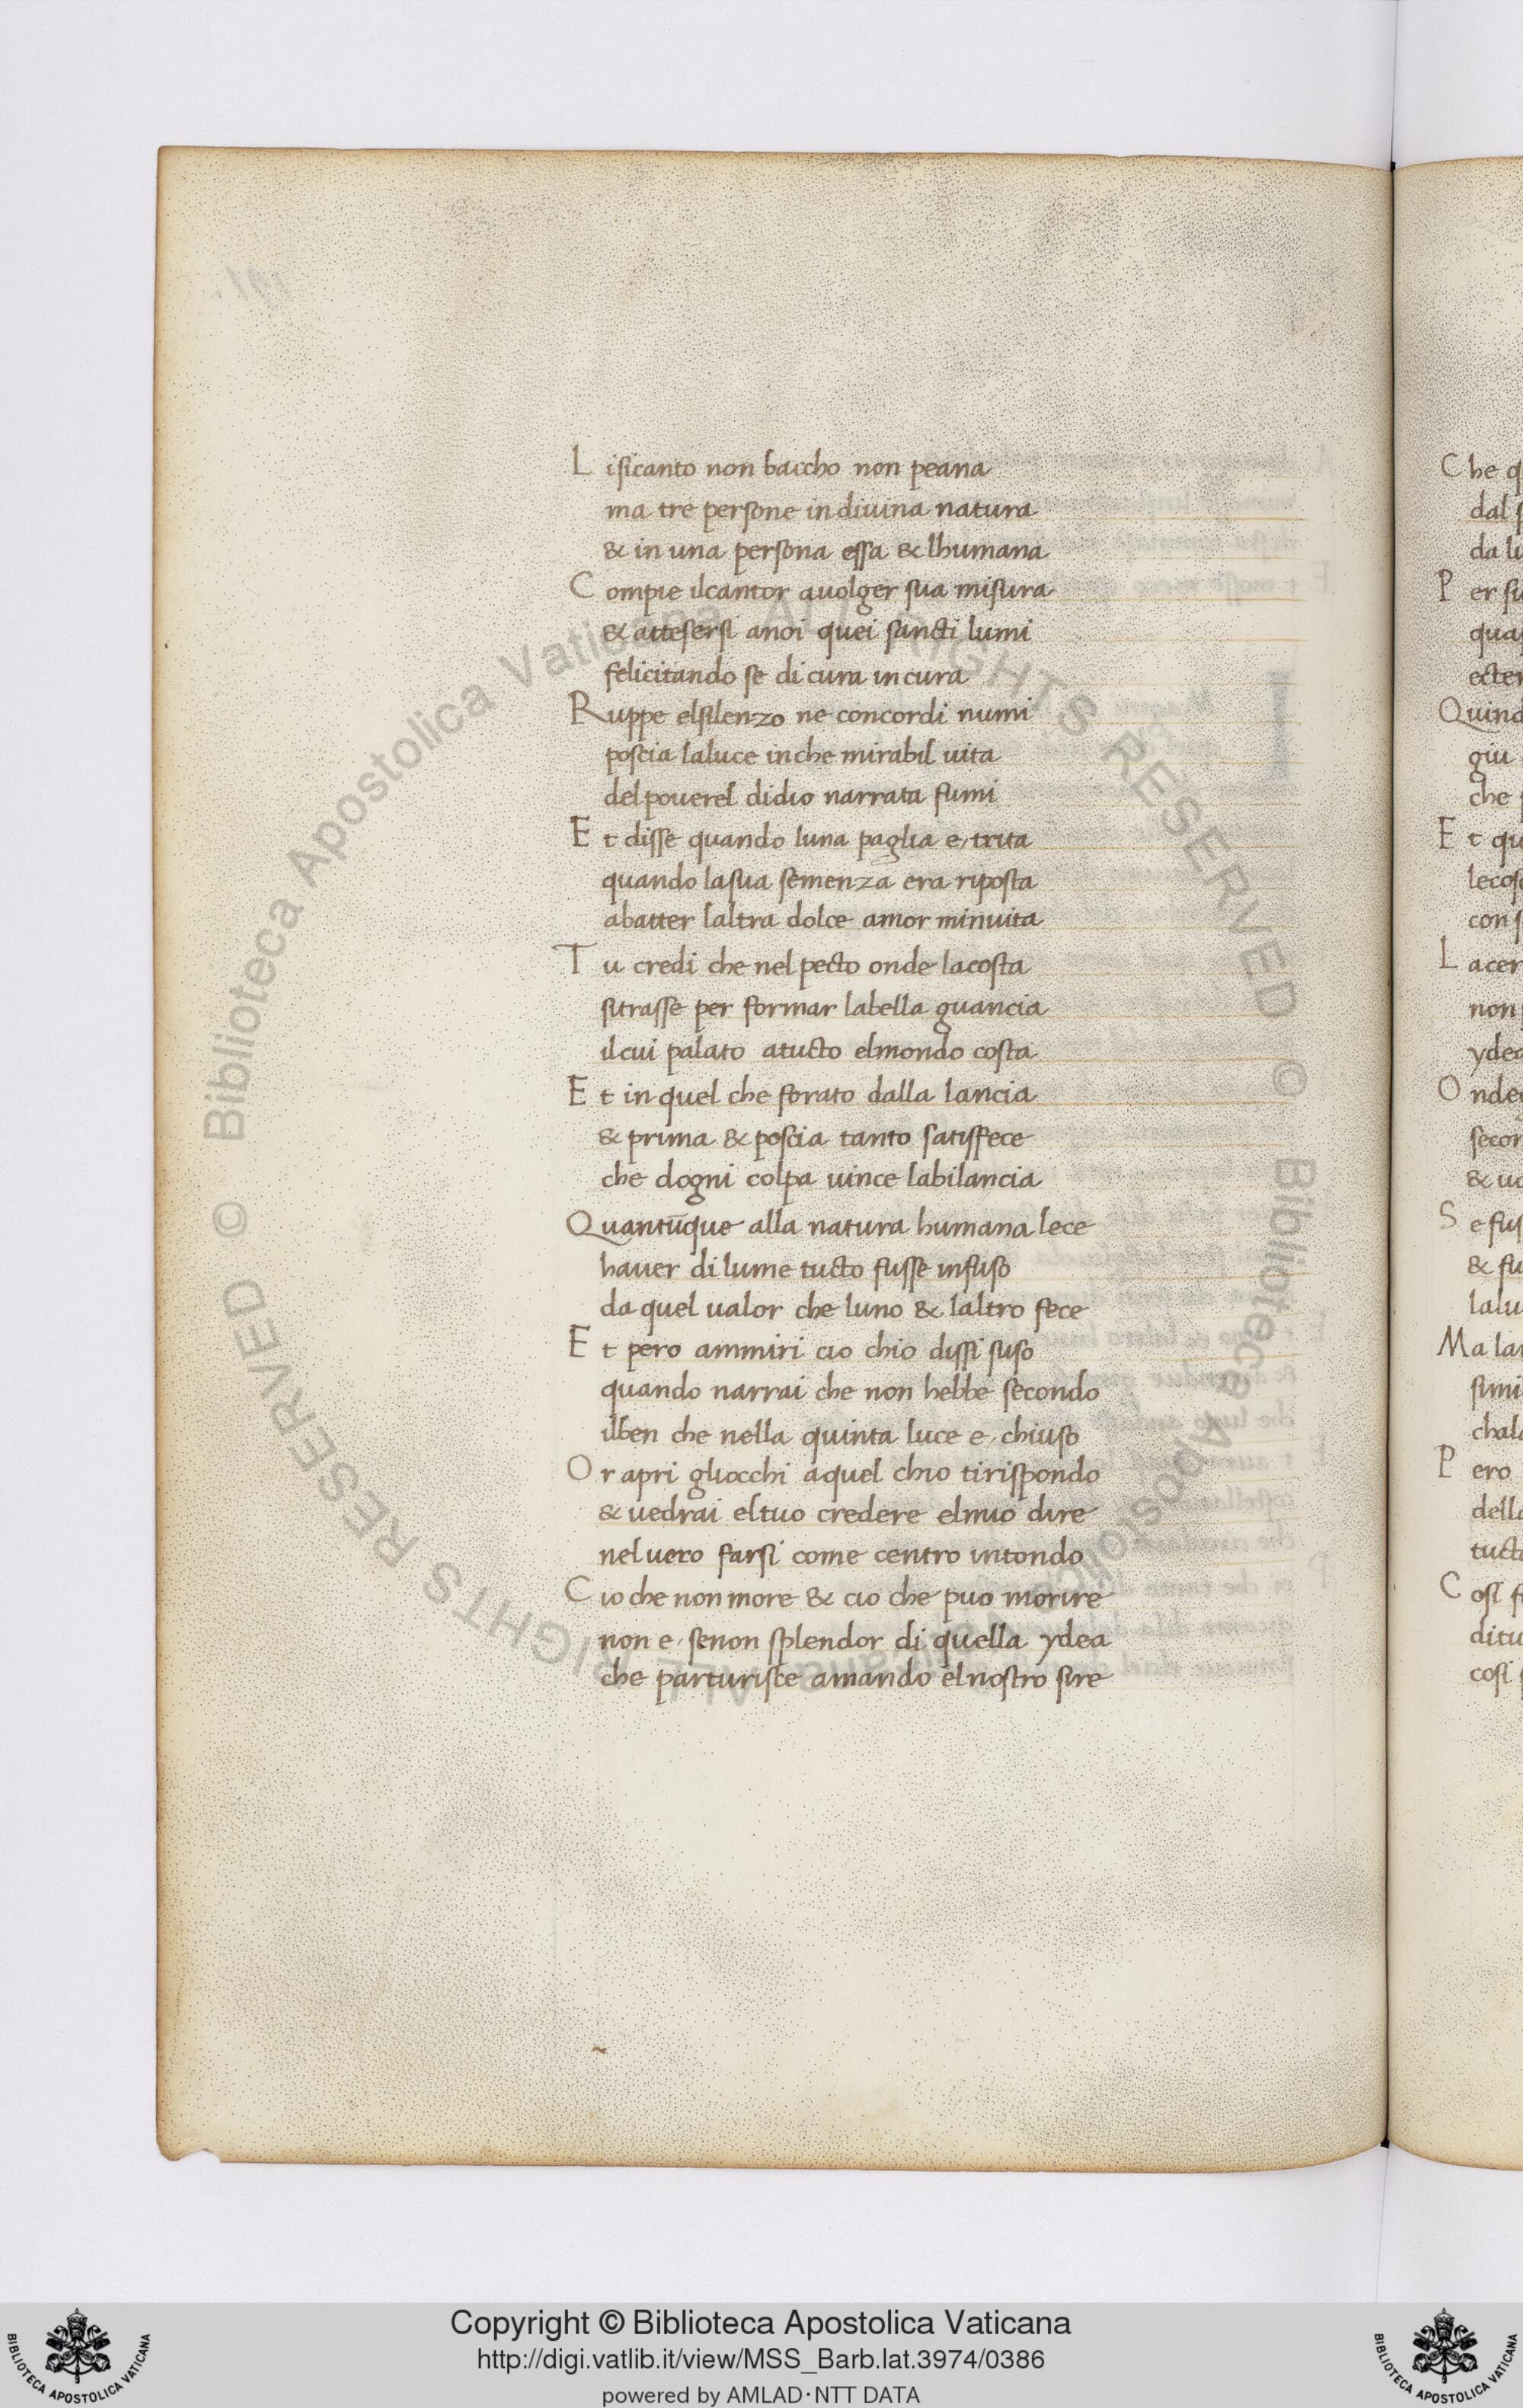 L isicanto non baccho non peana
ma tre persone in diuina natura
& in una persona essa & lhumana
C ompie ilcantor auolger sua misura
& attesersi anoi quei sancti lumi
felicitando se di cura incura
R uppe elsilenzo ne concordi numi
poscia laluce inche mirabil uita
delpouerel didio narrata fumi
E t disse quando luna paglia e, trita
quando lasua semenza era riposta
abatter laltra dolce amor minuita
T u credi che nel pecto onde lacosta
sitrasse per formar labella guancia
ilcui palato atucto elmondo costa
E t in quel che forato dalla lancia
& prima & poscia tanto satisfece
che dogni colpa uince labilancia
Q uantūque alla natura humana lece
hauer di lume tucto fusse infuso
da quel ualor che luno & laltro fece
E t pero ammiri cio chio dissi suso
quando narrai che non hebbe secondo
ilben che nella quinta luce e, chiuso
O r apri gliocchi aquel chio tirispondo
& uedrai eltuo credere elmio dire
neluero farsi come centro intondo
C io che non more & cio che puo morire
non e, senon splendor di quella ydea
che parturisce amando elnostro sire
C he q
dal
da lu
P er su
qua
ecter
Quind
giu
che
E t qu
lecos
con
L acer
non
ydea
O nde
secon
& u
S e fus
& fu
lalu
M a la
simi
chal
P ero
della
tucta
C osi f
ditu
cosi
© Biblioteca Apostolica Vaticana ALL RIGHTS RESERVED © Biblioteca Apostolica Vaticana ALL RIGHTS RESERVED
BIBLIOTECA APOSTOLICA VATICANA
Copyright © Biblioteca Apostolica Vaticana
http://digi.vatlib.it/view/MSS_Barb.lat.3974/0386
powered by AMLAD·NTT DATA
BIBLIOTECA APOSTOLICA VATICANA